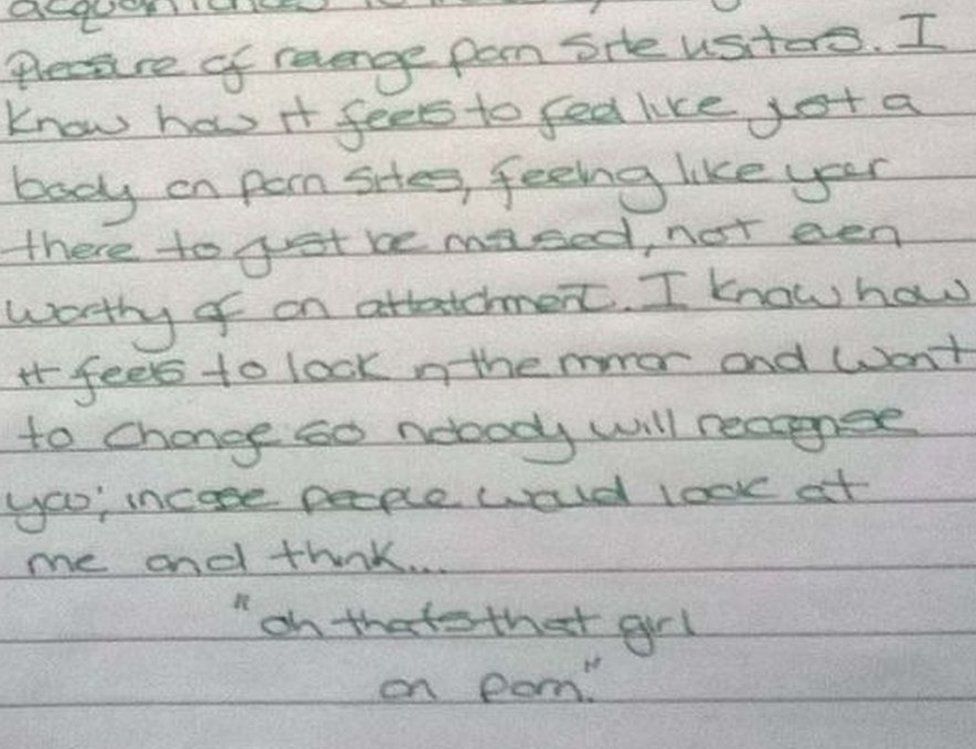 pleasure of revenge porn site visitors. I
know how it feels to feel like just a
body on porn sites, feeling like your
there to just be misused, not even
worthy of an attatchment. I know how
it feels to look in the mirror and want
to change so nobody will recognise
you; incase people would look at
me and think...
"oh thats that girl
on porn."